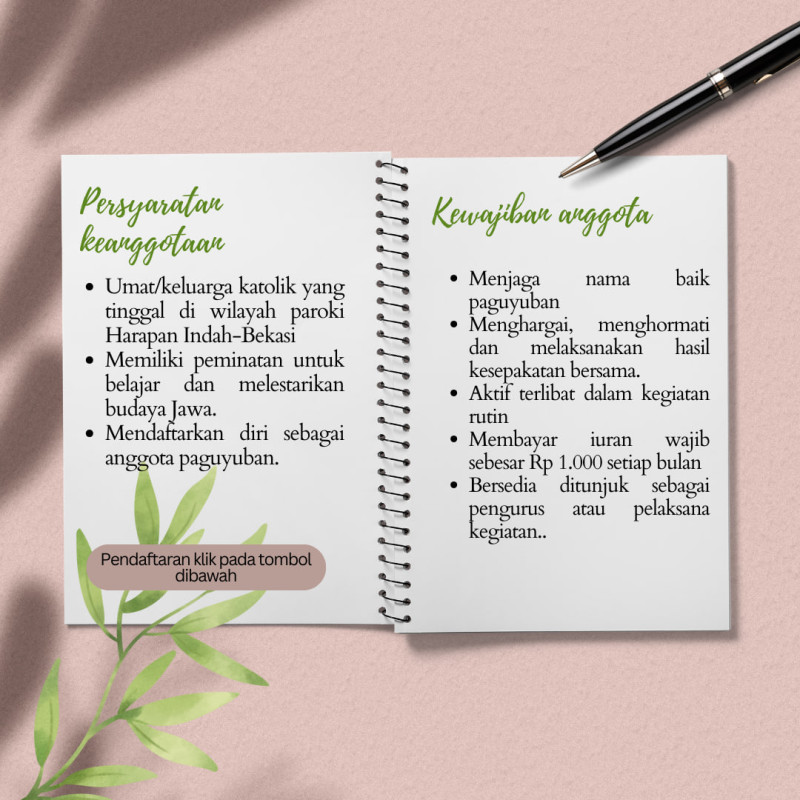 Persyaratan
keanggotaan
• Umat/keluarga katolik yang
tinggal di wilayah paroki
Harapan Indah-Bekasi
• Memiliki peminatan untuk
belajar dan melestarikan
budaya Jawa.
• Mendaftarkan diri sebagai
anggota paguyuban.
Pendaftaran klik pada tombol
dibawah
Kewajiban anggota
• Menjaga nama baik
paguyuban
• Menghargai, menghormati
dan melaksanakan hasil
kesepakatan bersama.
• Aktif terlibat dalam kegiatan
rutin
• Membayar iuran wajib
sebesar Rp 1.000 setiap bulan
• Bersedia ditunjuk sebagai
pengurus atau pelaksana
kegiatan..